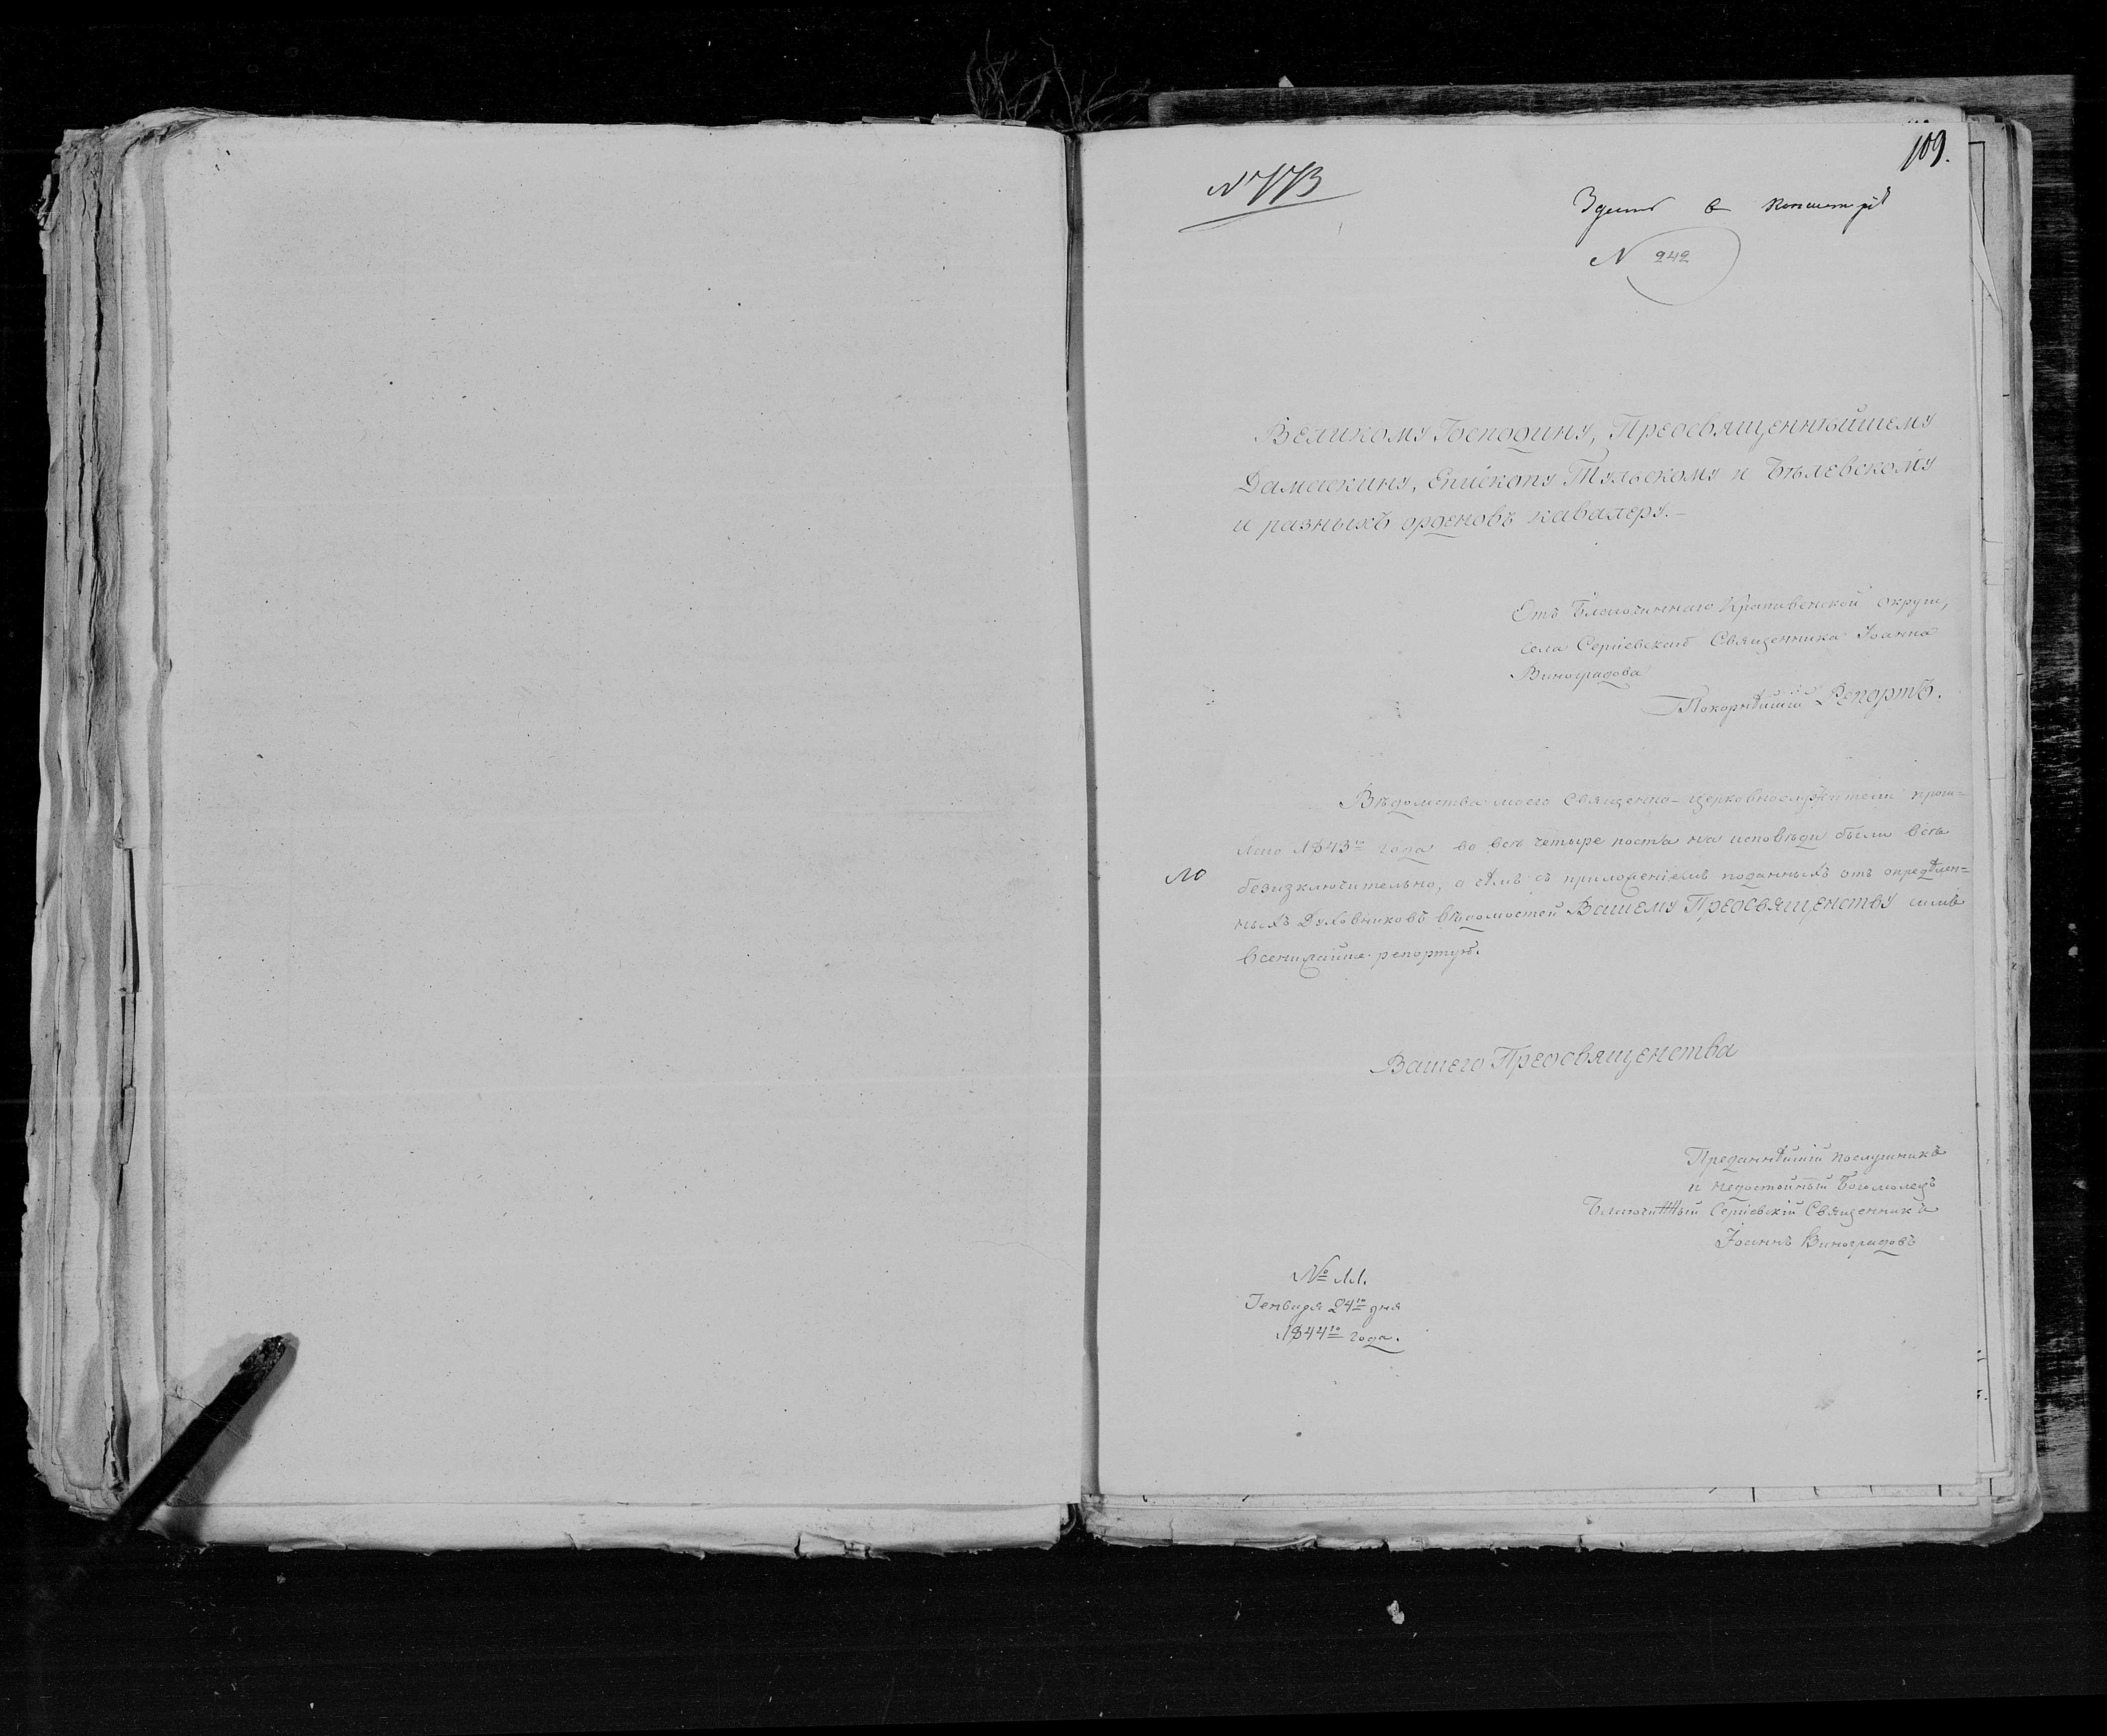 109.
N 773
в консисторіи
N 242
Великому Господину, Преосвященнѣйшему
Дамаскину, Епископу Тульскому и Бѣлевскому
и разныхъ орденовъ кавалеру.-
Отъ Благочиннаго Крапивенской округи,
села Сергіевскаго Священника Іоанна
Виноградова
Покорнѣйшій Репортъ.
Вѣдомства моего Священно-церковнослужители прош=
лаго 1843го года во всѣ четыре поста на исповѣди были всѣ
безизключительно, о семъ съ приложеніемъ поданныхъ отъ опредѣлен=
ныхъ Духовниковъ вѣдомостей Вашему Преосвященству симъ
всенижайше репортую.
Вашего Преосвященства
Преданнѣйшій послушникъ
и недостойный Богомолецъ
Благочинный Сергіевскій Священникъ
Іоаннъ Виноградовъ
№ 11.
Генваря 24го дня
1844го года.